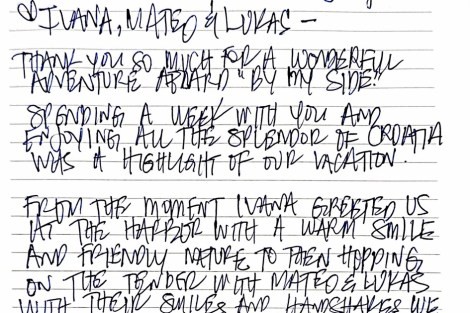 ♡ IVANA, MATEO & LUKAS —
THANK YOU SO MUCH FOR A WONDERFUL
ADVENTURE ABOARD "BY MY SIDE".
SPENDING A WEEK WITH YOU AND
ENJOYING ALL THE SPLENDOR OF CROATIA
WAS A HIGHLIGHT OF OUR VACATION.
FROM THE MOMENT IVANA GREETED US
AT THE HARBOR WITH A WARM SMILE
AND FRIENDLY NATURE TO THEN HOPPING
ON THE TENDER WITH MATEO & LUKAS
WITH THEIR SMILES AND HANDSHAKES WE